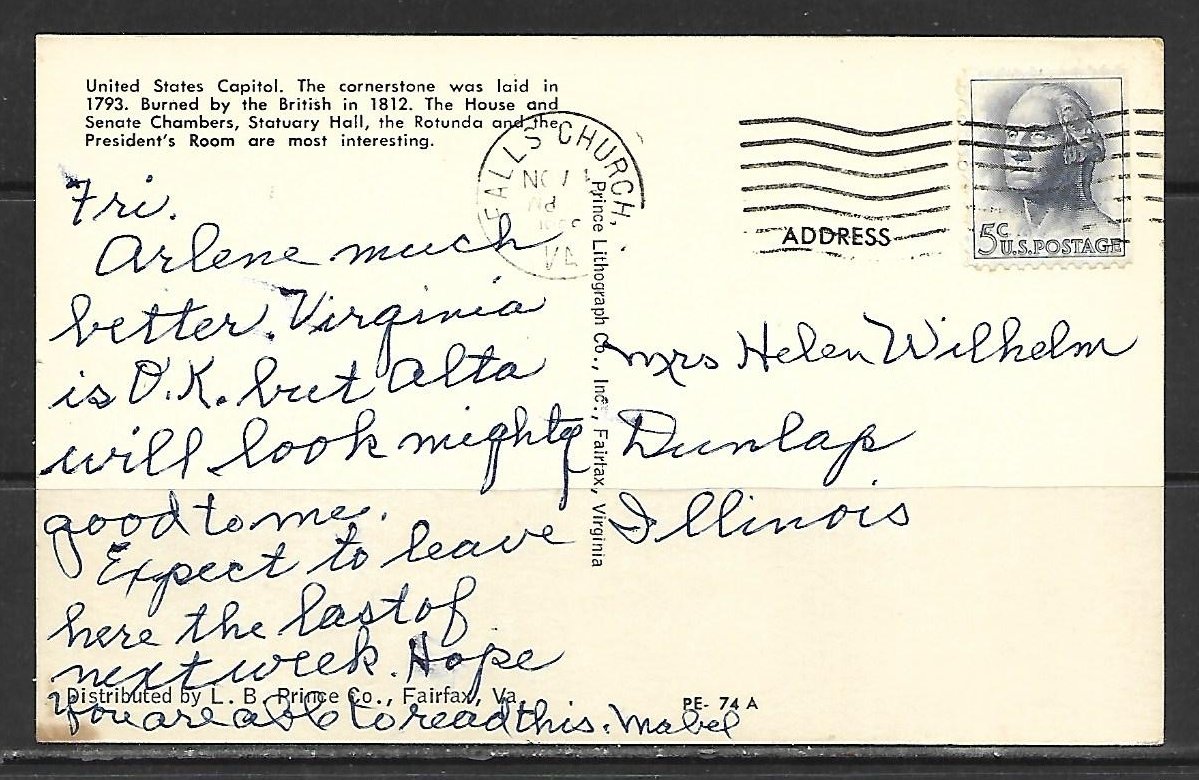 United States Capitol. The cornerstone was laid in
1793. Burned by the British in 1812. The House and
Senate Chambers, Statuary Hall, the Rotunda and the
President's Room are most interesting.
FALLS CHURCH,
VA
ADDRESS
5c U.S. POSTAGE
Fri.
Arlene much
better. Virginia
is O.K. but Alta
will look mighty
good to me.
Expect to leave
here the last of
next week. Hope
you are able to read this. Mabel
Prince Lithograph Co., Inc., Fairfax, Virginia
Mrs Helen Wilhelm
Dunlap
Illinois
Distributed by L. B. Prince Co., Fairfax, Va.
PE- 74 A